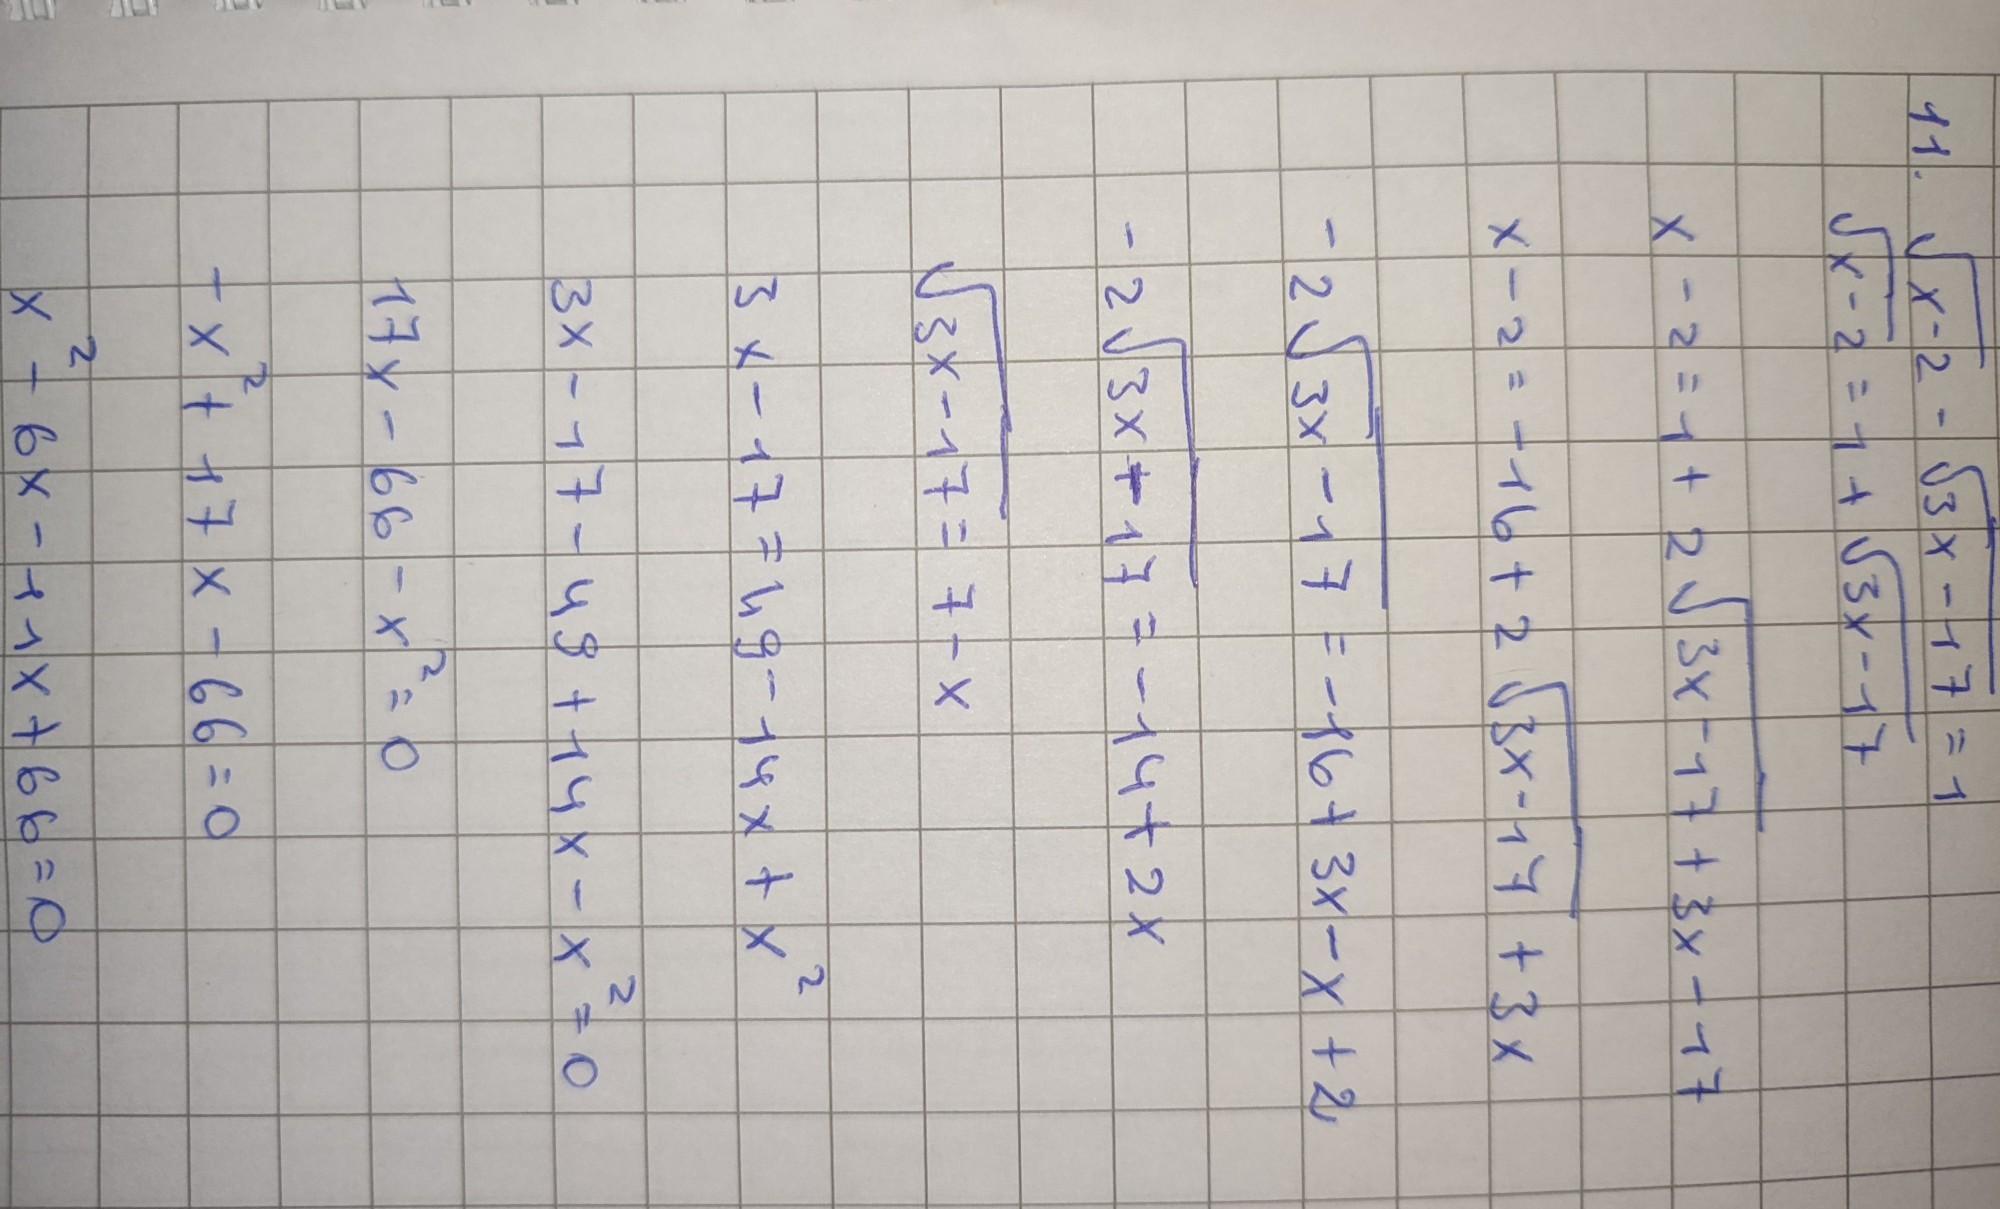 11. √x-2 - √3x-17 = 1
√x-2 = 1 + √3x-17
x - 2 = 1 + 2√3x-17 + 3x - 17
x - 2 = -16 + 2√3x-17 + 3x
- 2√3x-17 = -16 + 3x - x + 2
- 2√3x+17 = -14 + 2x
√3x-17 = 7 - x
3x - 17 = 49 - 14x + x²
3x - 17 - 49 + 14x - x² = 0
17x - 66 - x² = 0
- x² + 17x - 66 = 0
x² - 6x - 11x + 66 = 0